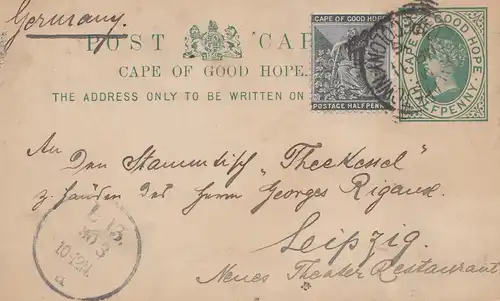 Germany.
POST CARD
CAPE OF GOOD HOPE.
THE ADDRESS ONLY TO BE WRITTEN ON
CAPE OF GOOD HOPE
POSTAGE HALFPENNY
CAPE OF GOOD HOPE.
HALFPENNY
An
Den Stammtisch "Theekessel"
z. Händen des Herrn Georges Rigaux.
Leipzig.
Neues Theater Restaurant
L 13.
3
10-12N.
a